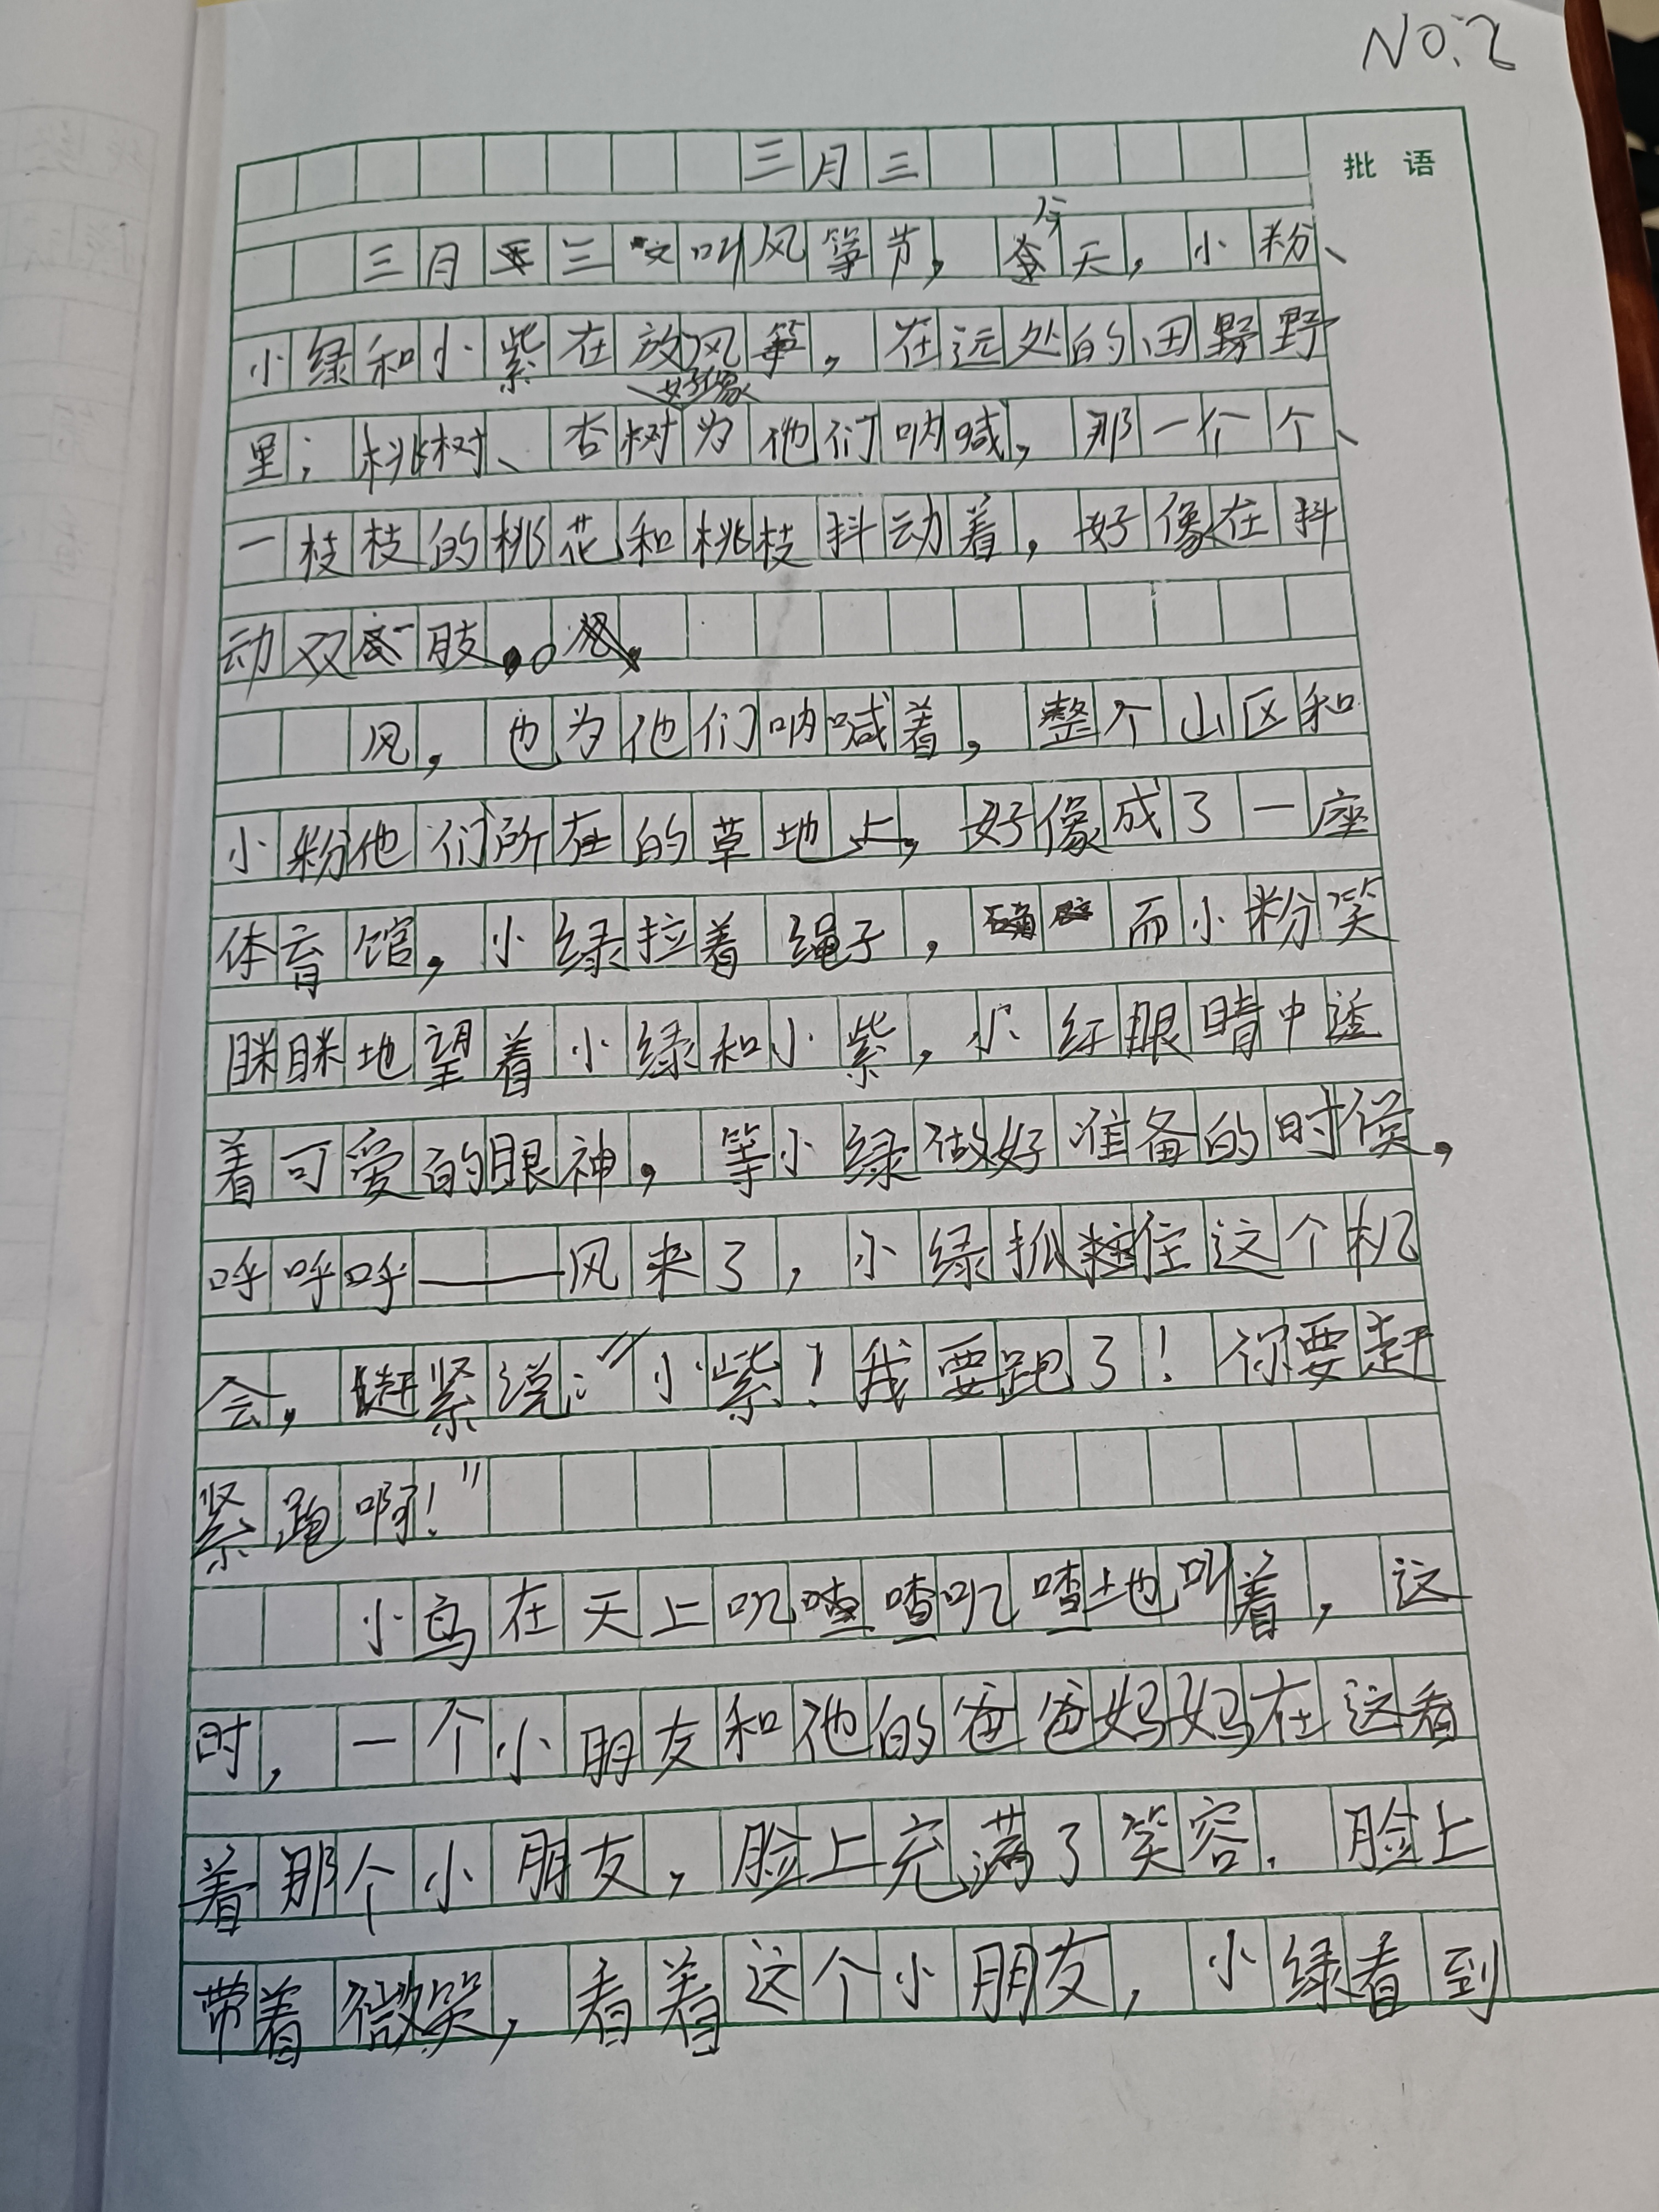 NO.2
批语
三月三
三月三又叫风筝节，今天，小粉、
小绿和小紫在放风筝，在远处的田野野
里；桃树、杏树好像为他们呐喊，那一个个、
一枝枝的桃花和桃枝抖动着，好像在抖
动双肢。
风，也为他们呐喊着，整个山区和
小粉他们所在的草地上，好像成了一座
体育馆，小绿拉着绳子，而小粉笑
眯眯地望着小绿和小紫，小红眼睛中透
着可爱的眼神，等小绿做好准备的时候，
呼呼呼——风来了，小绿抓住这个机
会，赶紧说：“小紫！我要跑了！你要赶
紧跑啊！”
小鸟在天上叽喳喳叽喳地叫着，这
时，一个小朋友和他的爸爸妈妈在这看
着那个小朋友，脸上充满了笑容．脸上
带着微笑，看着这个小朋友，小绿看到